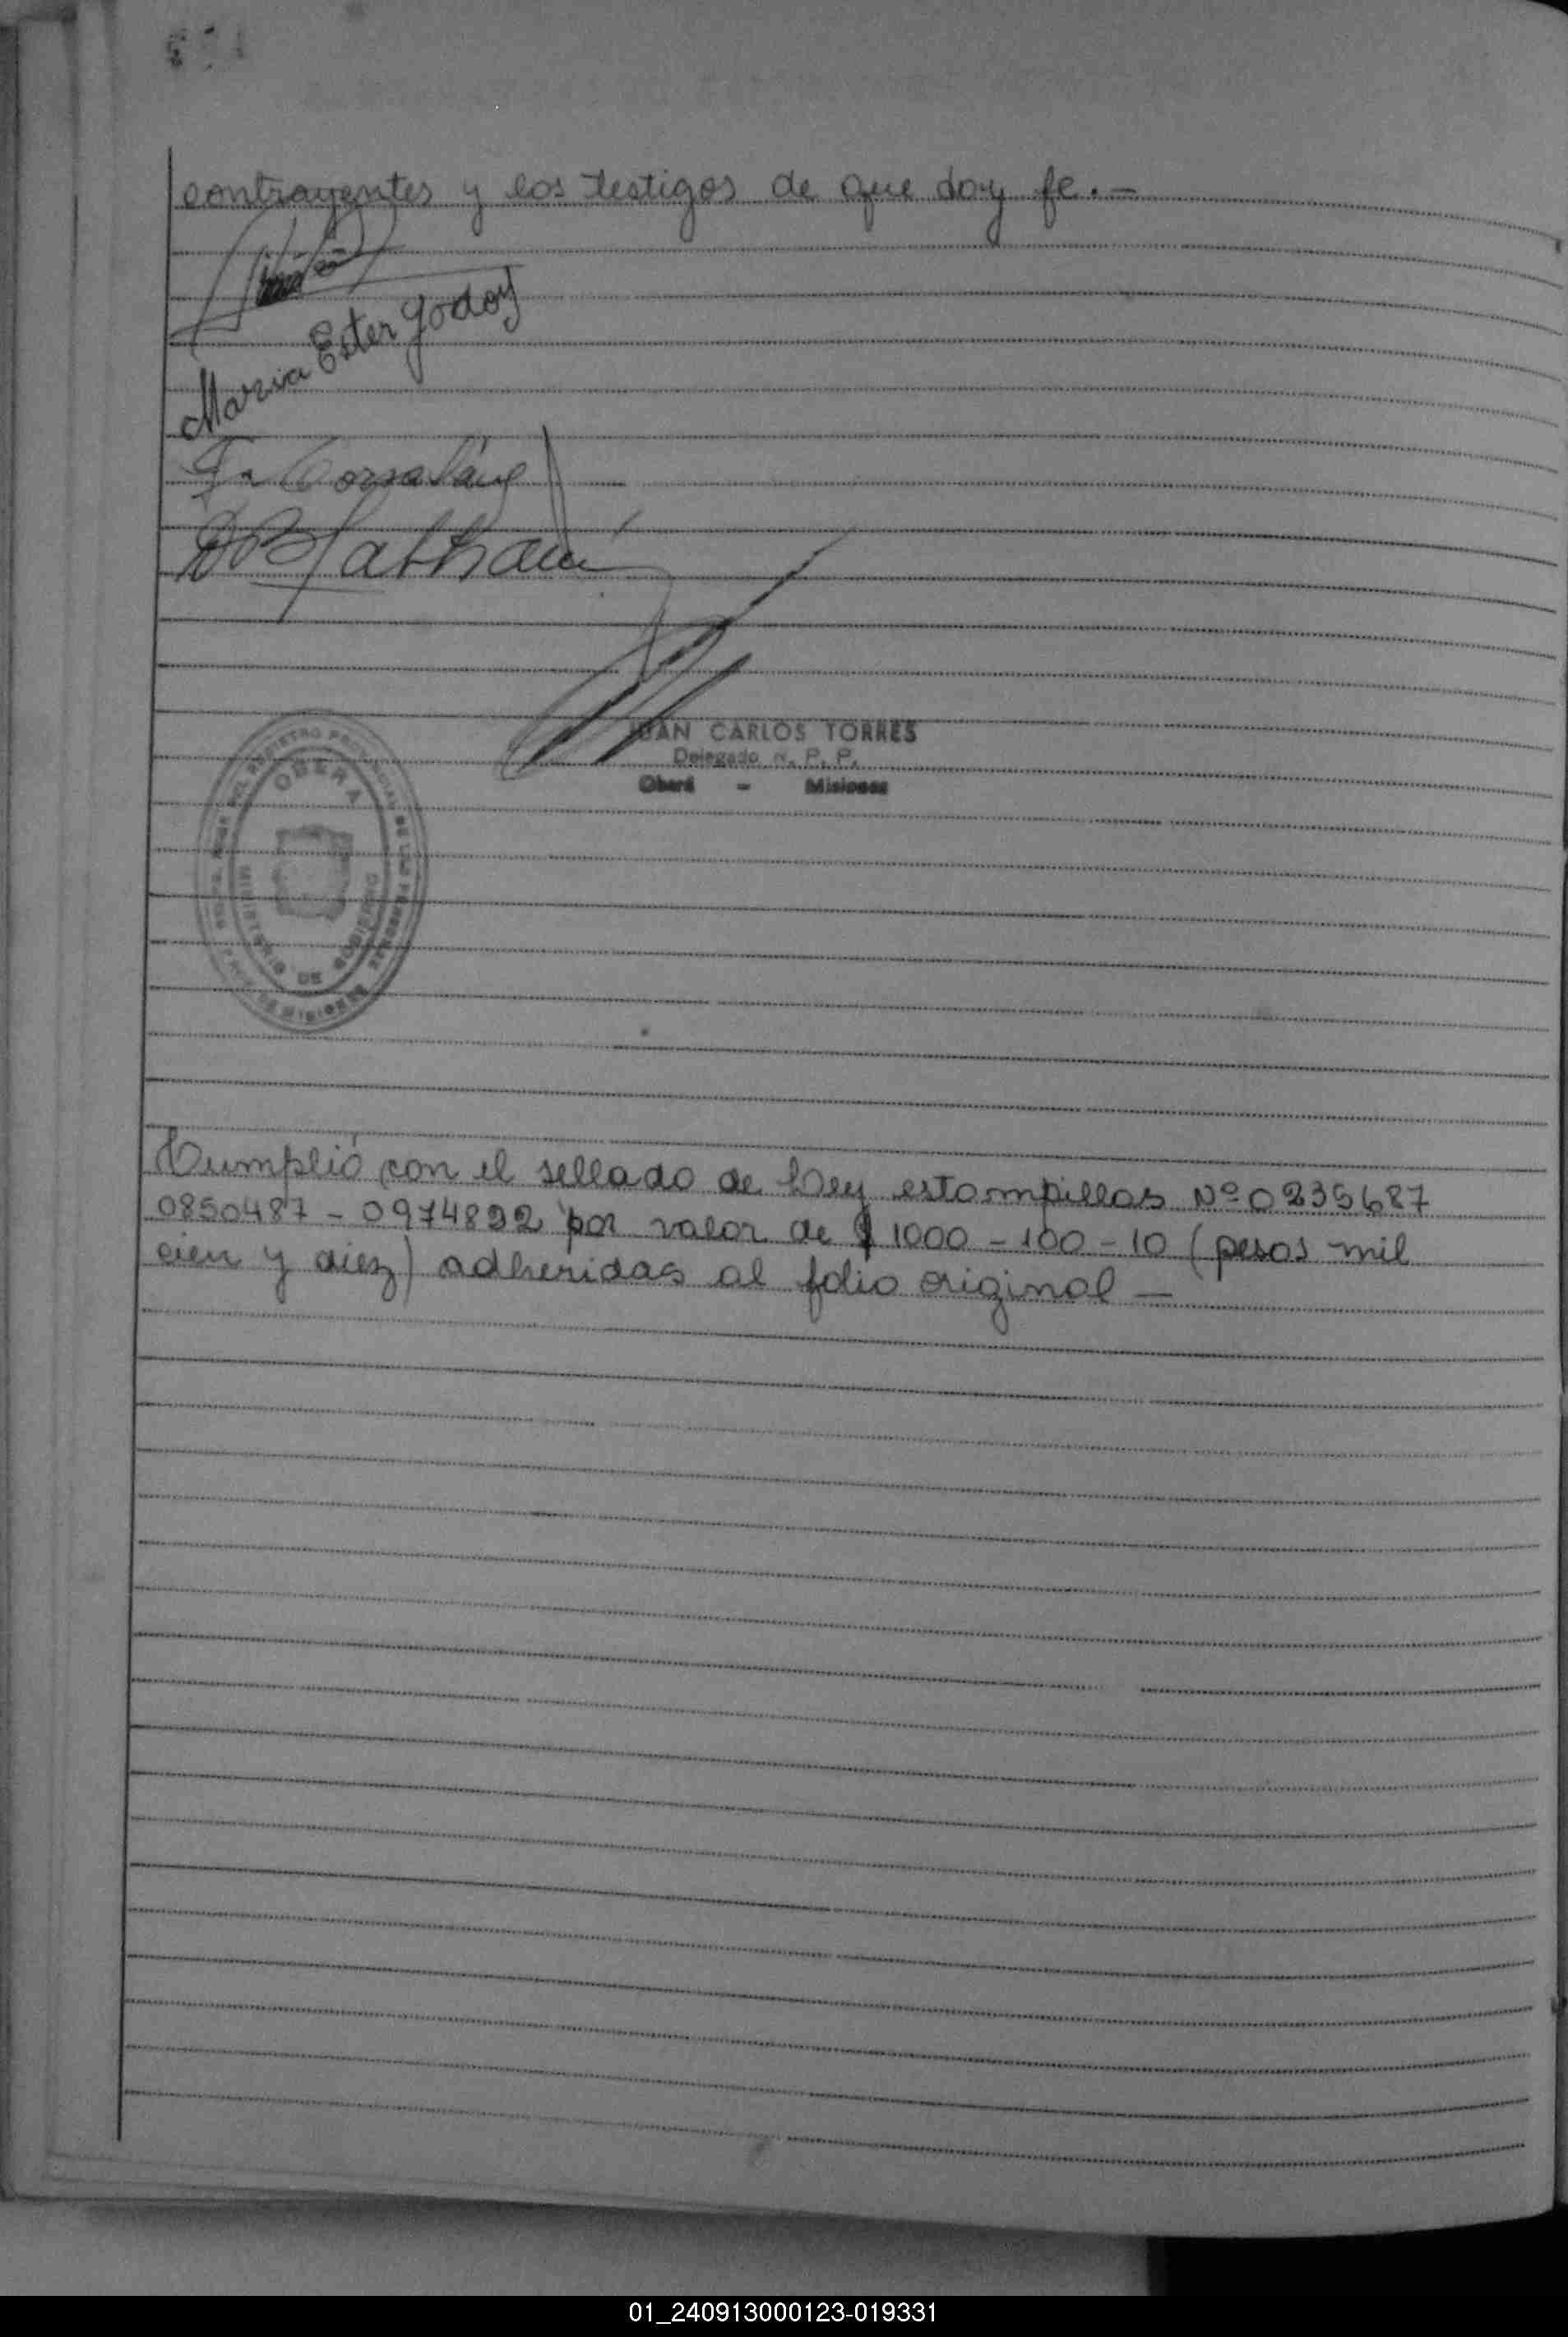 contrayentes y los testigos de que doy fe.—
Maria Ester Godoy
JUAN CARLOS TORRES
Delegado R. P. P.
Oberá - Misiones
OBERA
MINISTERIO DE GOBIERNO
REGISTRO PROVINCIAL DE LAS PERSONAS
DE MISIONES
Cumplió con el sellado de Ley estampillas Nº 0235687
0850487 - 0974892 por valor de $ 1000 - 100 - 10 (pesos mil
cien y diez) adheridas al folio original —
01_240913000123-019331